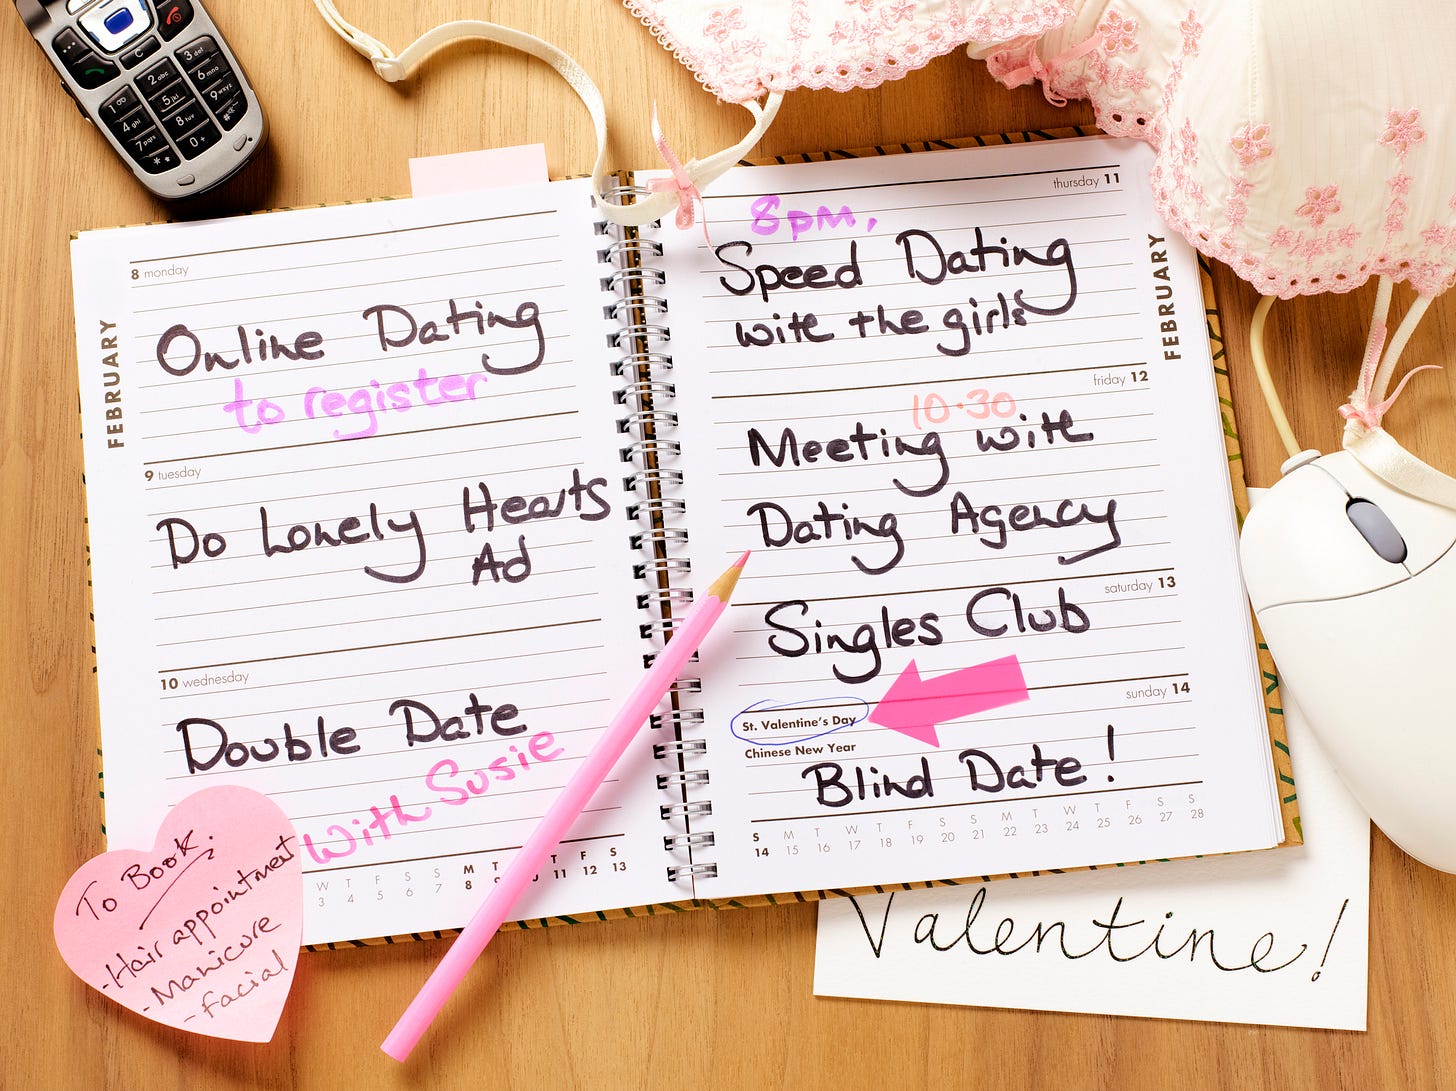 FEBRUARY
8 monday
Online Dating
to register
9 tuesday
Do Lonely Hearts
Ad
10 wednesday
Double Date
With Susie
W T F S S M T F S
3 4 5 6 7 8 9 11 12 13
To Book:
- Hair appointment
- Manicure
- facial
thursday 11
8pm,
Speed Dating
with the girls
FEBRUARY
friday 12
10.30
Meeting with
Dating Agency
saturday 13
Singles Club
sunday 14
St. Valentine's Day
Chinese New Year
Blind Date!
S M T W T F S S M T W T F S S
14 15 16 17 18 19 20 21 22 23 24 25 26 27 28
Valentine!
1
2abc
3def
4ghi
5jkl
6mno
7pqrs
8tuv
9wxyz
*
0+
#
C